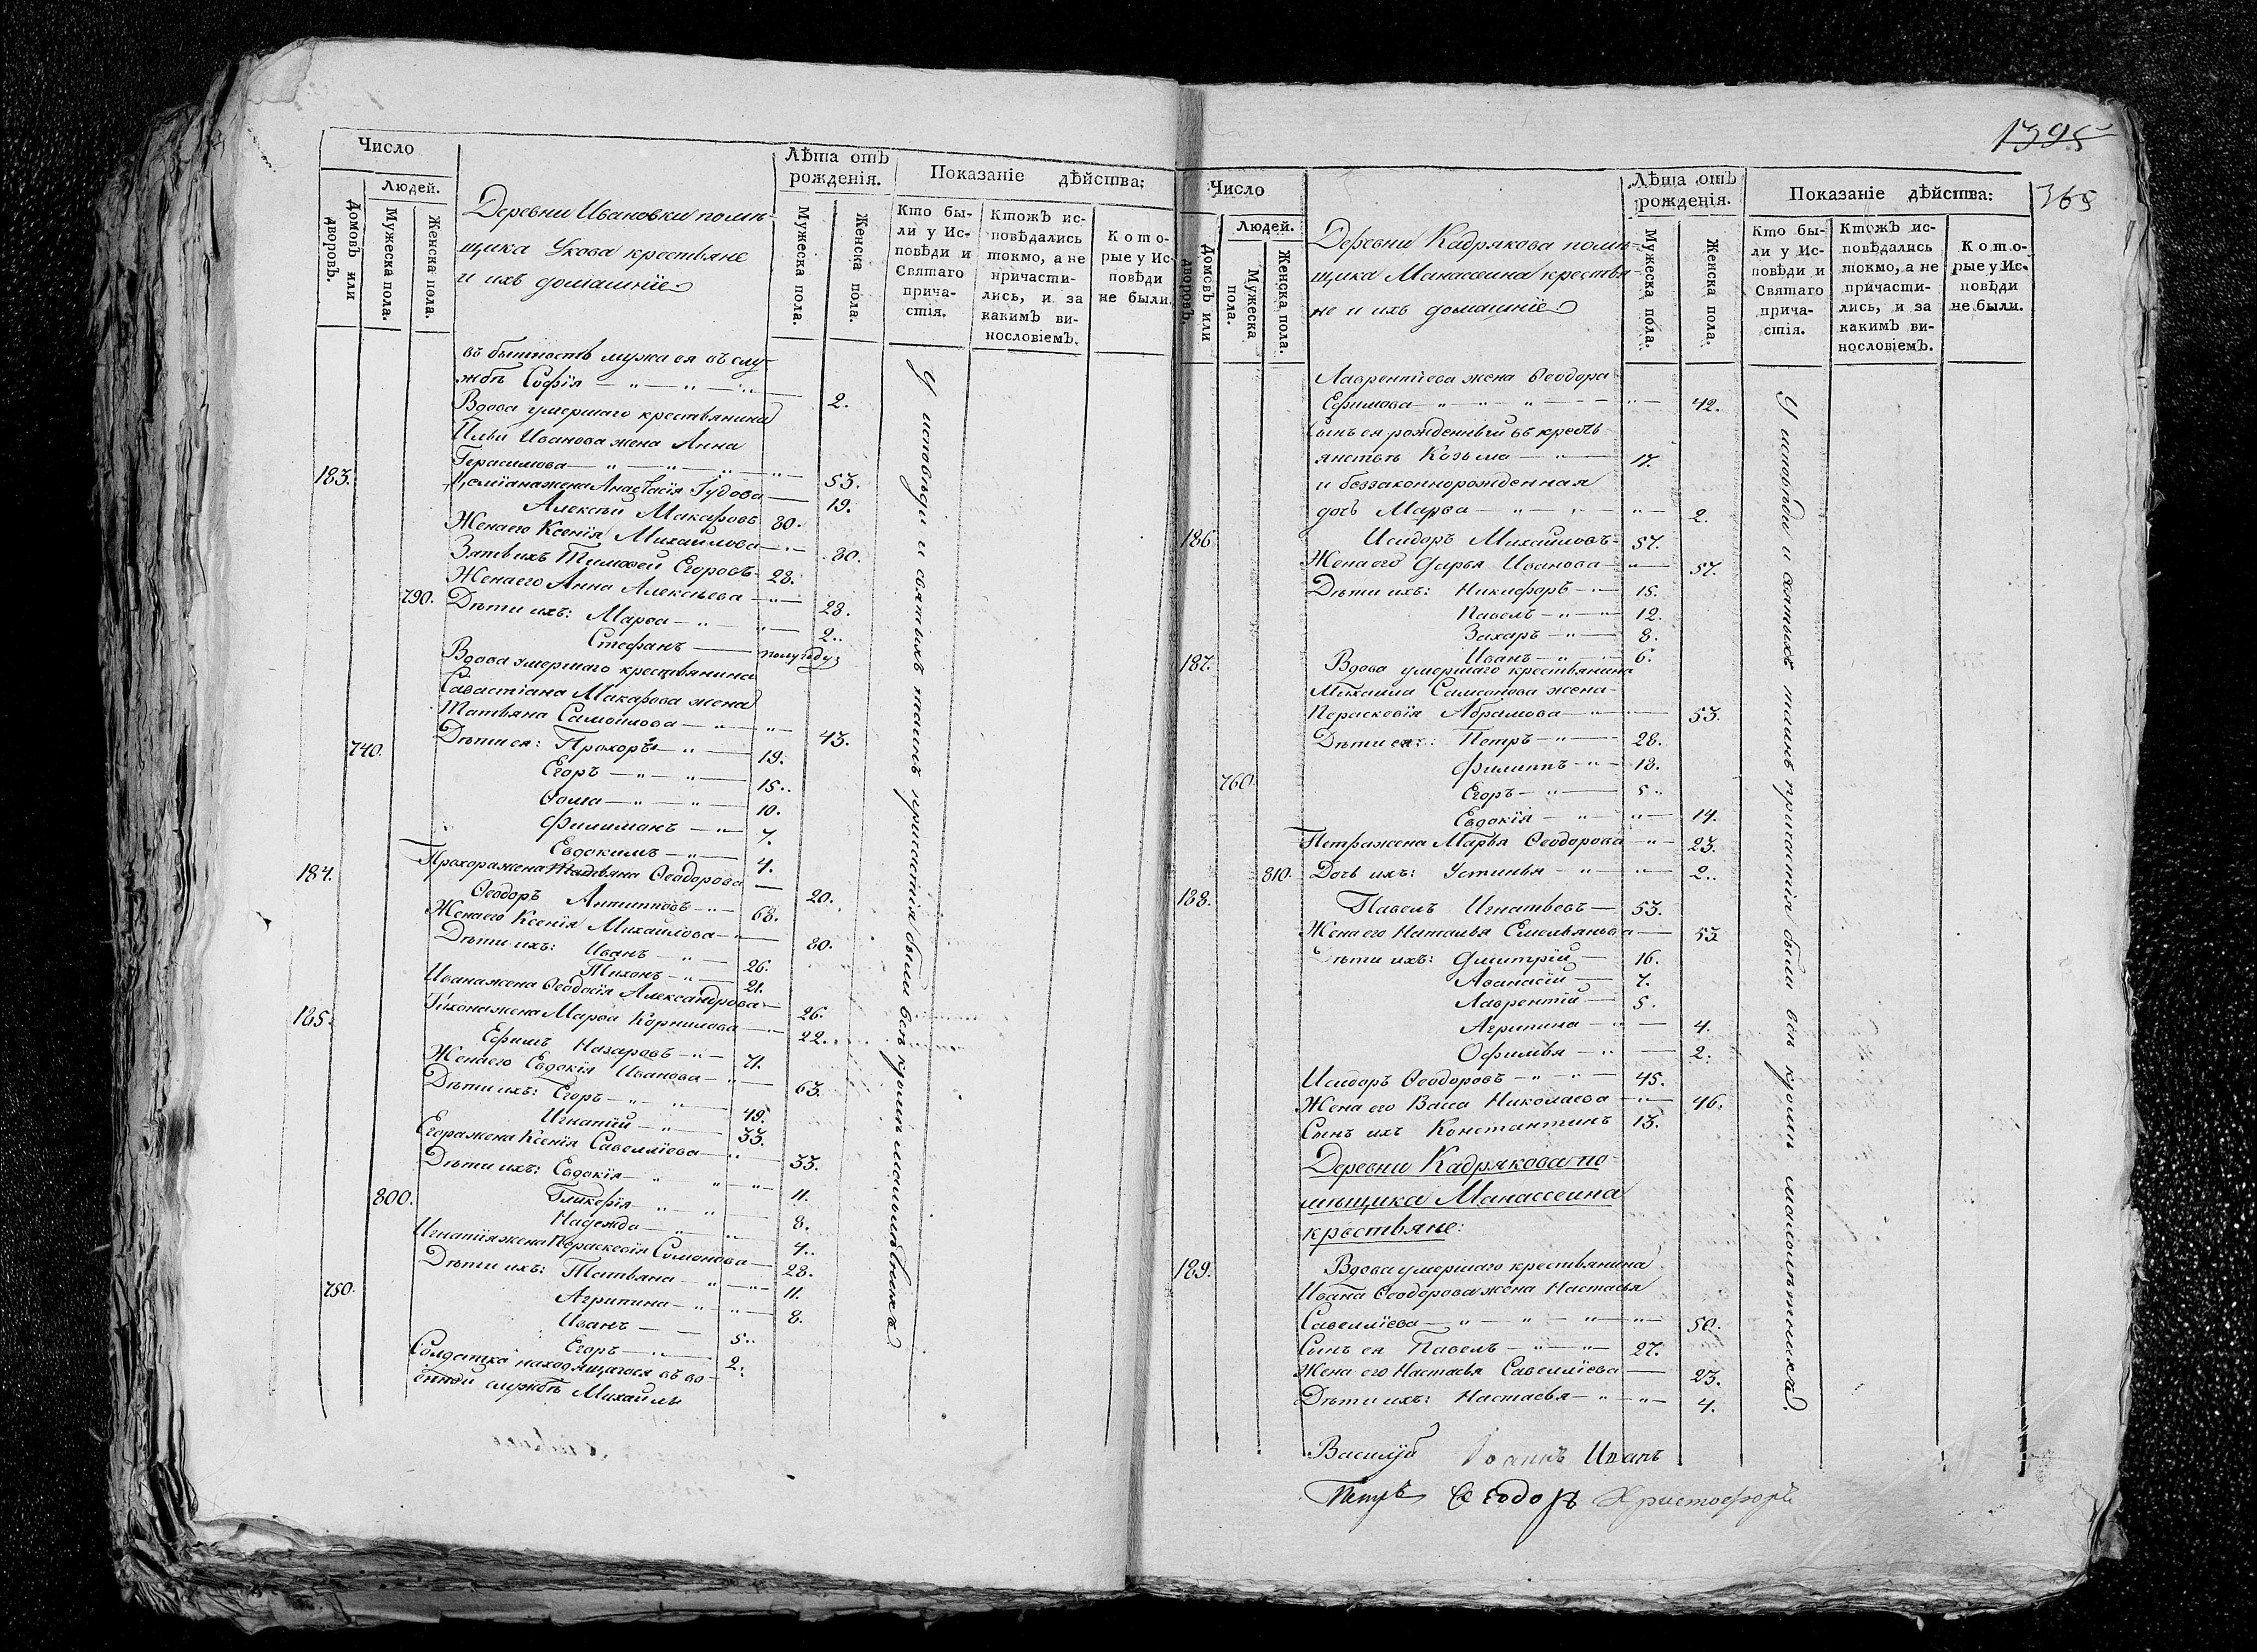 Число
Людей.
Домовъ или дворовъ.
Мужеска пола.
Женска пола.
Деревни Ивановки помѣ-
щика Укова крестьяне
и ихъ домашніе
Лѣта отъ
рожденія.
Мужеска пола.
Женска пола.
Показаніе дѣйства:
Кто бы-
ли у Ис-
повѣди и
Святаго
прича-
стія.
Ктожъ ис-
повѣдались
токмо, а не
причасти-
лись, и за
какимъ ви-
нословіемъ.
Кото-
рые у Ис-
повѣди
не были.
въ бытность мужа ея въ слу-
жбѣ Софія 2.
Вдова умершаго крестьянина
Ильи Иванова жена Анна
Герасимова 53.
Анастасія Гудова 19.
183. Алексѣй Макаровъ 80.
Жена его Ксенія Михайлова 80.
Зять ихъ Тимофей Егоровъ 28.
Жена его Анна Алексѣева 28.
790. Дѣти ихъ: Марѳа 2.
Стефанъ полугоду
Вдова умершаго крестьянина
Савастіана Макарова жена
Татьяна Самойлова 43.
740. Дѣти ея: Прохоръ 19.
Егоръ 15.
Ѳома 10.
Филимонъ 7.
Евдокимъ 4.
Прохора жена Татьяна Ѳеодорова 20.
184. Ѳеодоръ Антиповъ 68.
Жена его Ксенія Михайлова 80.
Дѣти ихъ: Иванъ 26.
Тихонъ 21.
Ивана жена Ѳеодосія Александрова 26.
Тихона жена Марѳа Корнилова 22.
185. Ефимъ Назаровъ 71.
Жена его Евдокія Иванова 63.
Дѣти ихъ: Егоръ 49.
Игнатій 33.
Егора жена Ксенія Савелліева 33.
Дѣти ихъ: Евдокія 11.
800. Гликерія 8.
Надежда 4.
Игнатія жена Параскевія Симонова 28.
Дѣти ихъ: Татьяна 11.
750. Агрипина 8.
Иванъ 5.
Егоръ 2.
Солдатка находящагося въ во-
енной службѣ Михайлы
У исповѣди и святыхъ таинъ причастія были всѣ кромѣ малолѣтнихъ
1395
365
Число
Людей.
Домовъ или дворовъ.
Мужеска пола.
Женска пола.
Деревни Кадрякова помѣ-
щика Манассеина крестья-
не и ихъ домашніе
Лѣта отъ
рожденія.
Мужеска пола.
Женска пола.
Показаніе дѣйства:
Кто бы-
ли у Ис-
повѣди и
Святаго
прича-
стія.
Ктожъ ис-
повѣдались
токмо, а не
причасти-
лись, и за
какимъ ви-
нословіемъ.
Кото-
рые у Ис-
повѣди
не были.
Лаврентіева жена Ѳеодора
Ефимова 42.
Сынъ ея рожденный въ кресть-
янствѣ Козьма 17.
и беззаконнорожденная
дочь Марѳа 2.
186 Исидоръ Михайловъ 57.
Жена его Дарья Иванова 57.
Дѣти ихъ: Никифоръ 15.
Павелъ 12.
Захаръ 8.
Иванъ 6.
187. Вдова умершаго крестьянина
Михаила Самсонова жена
Параскевія Абрамова 53.
Дѣти ея: Петръ 28.
Филиппъ 18.
760 Егоръ 5.
Евдокія 14.
Петра жена Марья Ѳеодорова 23.
810. Дочь ихъ: Устинья 2.
188. Павелъ Игнатьевъ 53.
Жена его Наталья Емельянова 53
Дѣти ихъ: Дмитрій 16.
Аѳанасій 7.
Лаврентій 5.
Агрипина 4.
Офимья 2.
Исидоръ Ѳеодоровъ 45.
Жена его Васса Николаева 46.
Сынъ ихъ Константинъ 13.
Деревни Кадрякова по-
мѣщика Манассеина
крестьяне:
189. Вдова умершаго крестьянина
Ивана Ѳеодорова жена Настасья
Савелліева 50.
Сынъ ея Павелъ 27.
Жена его Настасья Савелліева 23.
Дѣти ихъ: Настасья 4.
У исповѣди и святыхъ таинъ причастія были всѣ кромѣ малолѣтнихъ
Іоаннъ Иванъ
Петръ Ѳеодоръ Христофоръ